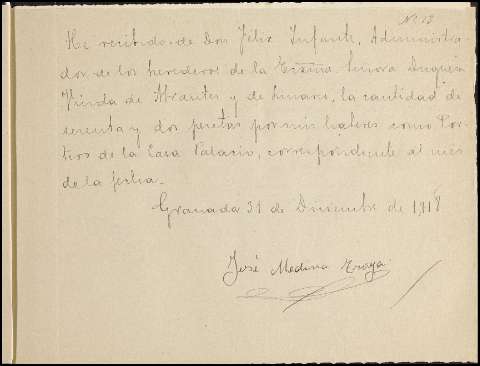 Nº 12
He recibido de Don Félix Infante, Administra-
dor de los herederos de la Excma Señora Duquesa
Viuda de Abrantes y de Linares, la cantidad de
sesenta y dos pesetas por mis haberes como Por-
tero de la Casa Palacio, correspondiente al mes
de la fecha.
Granada 31 de Diciembre de 1918
José Medina